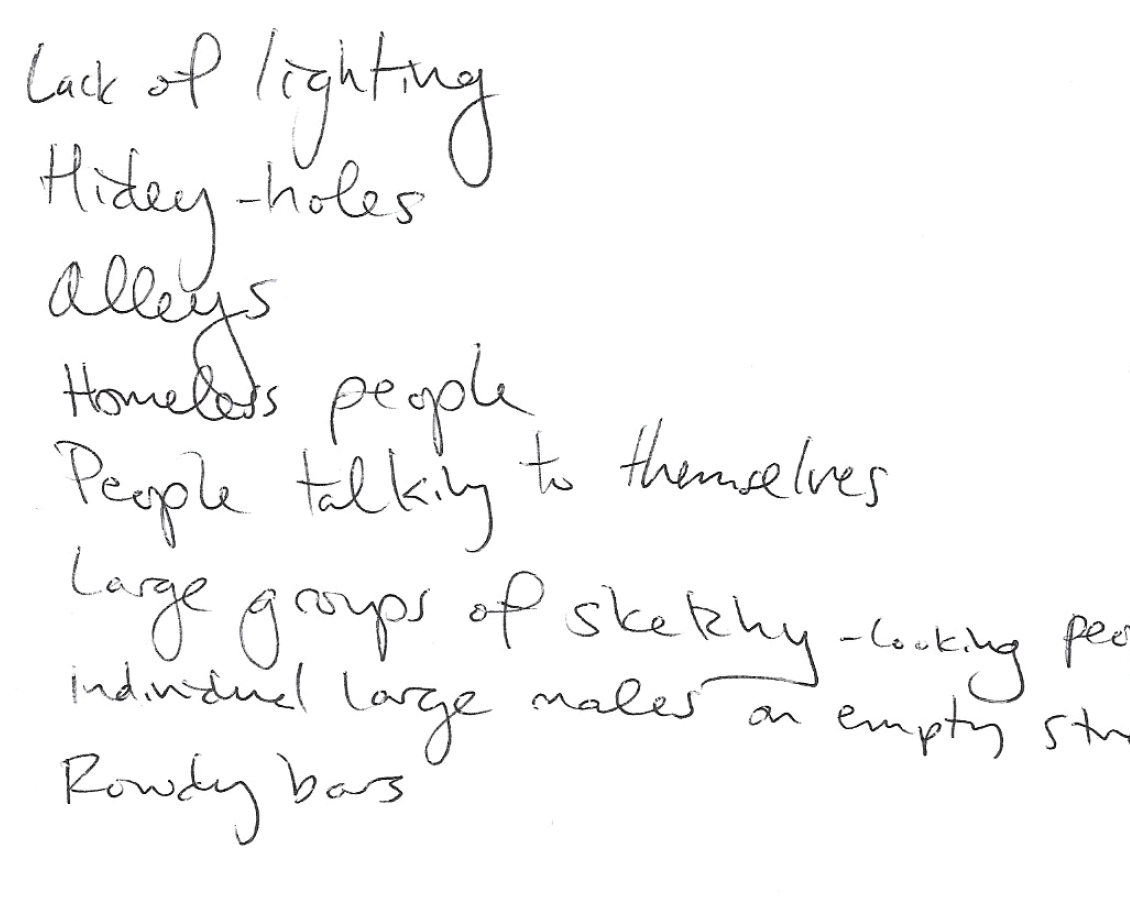 Lack of lighting
Hidey-holes
Alleys
Homeless people
People talking to themselves
Large groups of sketchy-looking peo
individual large males on empty str
Rowdy bars